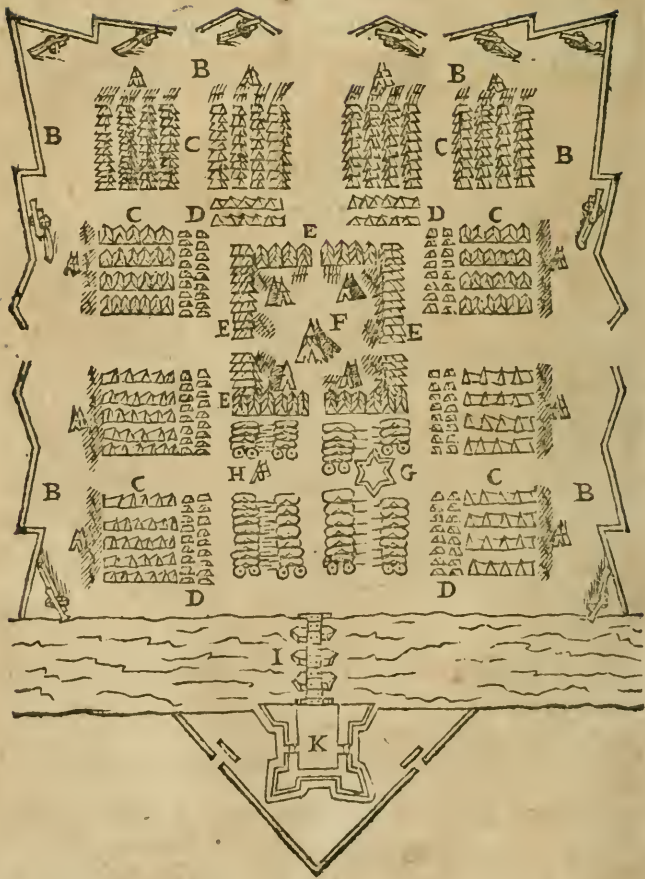 B B
B C C B
C D D C
E
E F E
E
H G
B C C B
D D
I
K